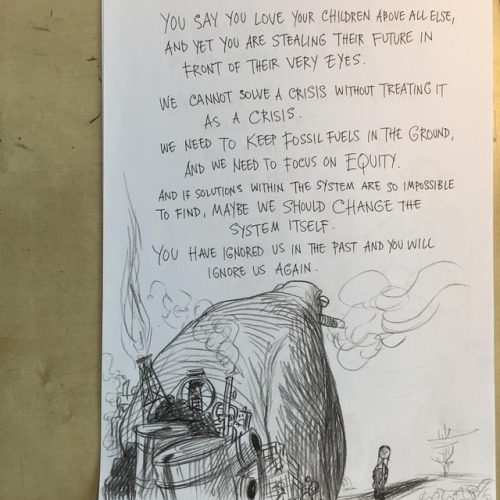 YOU SAY YOU LOVE YOUR CHILDREN ABOVE ALL ELSE,
AND YET YOU ARE STEALING THEIR FUTURE IN
FRONT OF THEIR VERY EYES.
WE CANNOT SOLVE A CRISIS WITHOUT TREATING IT
AS A CRISIS.
WE NEED TO KEEP FOSSIL FUELS IN THE GROUND,
AND WE NEED TO FOCUS ON EQUITY.
AND IF SOLUTIONS WITHIN THE SYSTEM ARE SO IMPOSSIBLE
TO FIND, MAYBE WE SHOULD CHANGE THE
SYSTEM ITSELF.
YOU HAVE IGNORED US IN THE PAST AND YOU WILL
IGNORE US AGAIN.